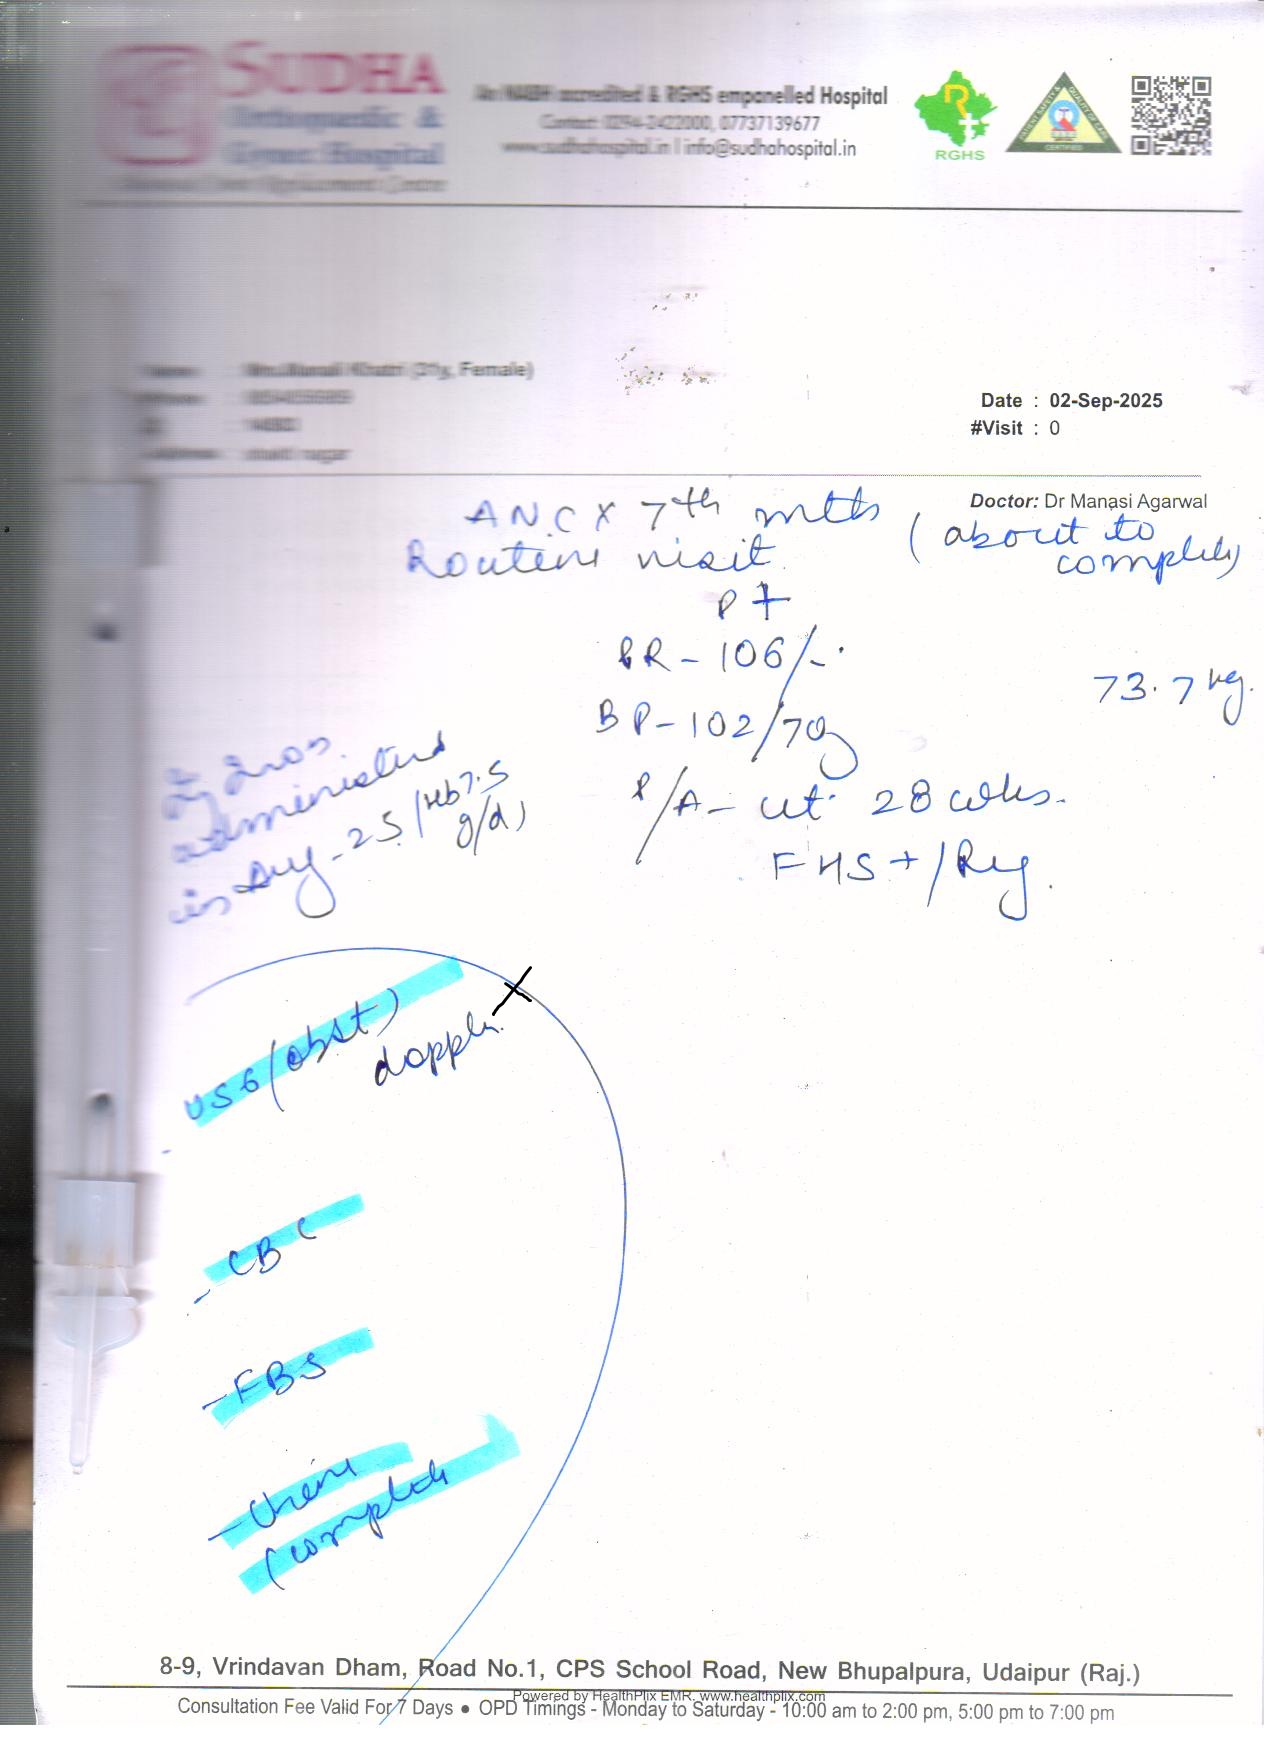 SUDHA
Orthopaedic &
Gynec Hospital
An NABH accredited & RGHS empanelled Hospital
Contact: 0294-2422000, 07737139677
www.sudhahospital.in | info@sudhahospital.in
RGHS
CERTIFIED
(31y, Female)
Date : 02-Sep-2025
#Visit : 0
Doctor: Dr Manasi Agarwal
ANC X 7th mths (about to
complete)
Routine visit
P+
PR - 106/-.
73.7 kg.
BP - 102/70
P/A - ut. 28 wks.
FHS + / Reg.
Inj Iron
administered
in Aug - 25 (Hb 7.5
g/d)
- USG (obst)
doppler
- CBC
- FBS
- Urine
(complete
8-9, Vrindavan Dham, Road No.1, CPS School Road, New Bhupalpura, Udaipur (Raj.)
Powered by HealthPlix EMR. www.healthplix.com
Consultation Fee Valid For 7 Days ● OPD Timings - Monday to Saturday - 10:00 am to 2:00 pm, 5:00 pm to 7:00 pm